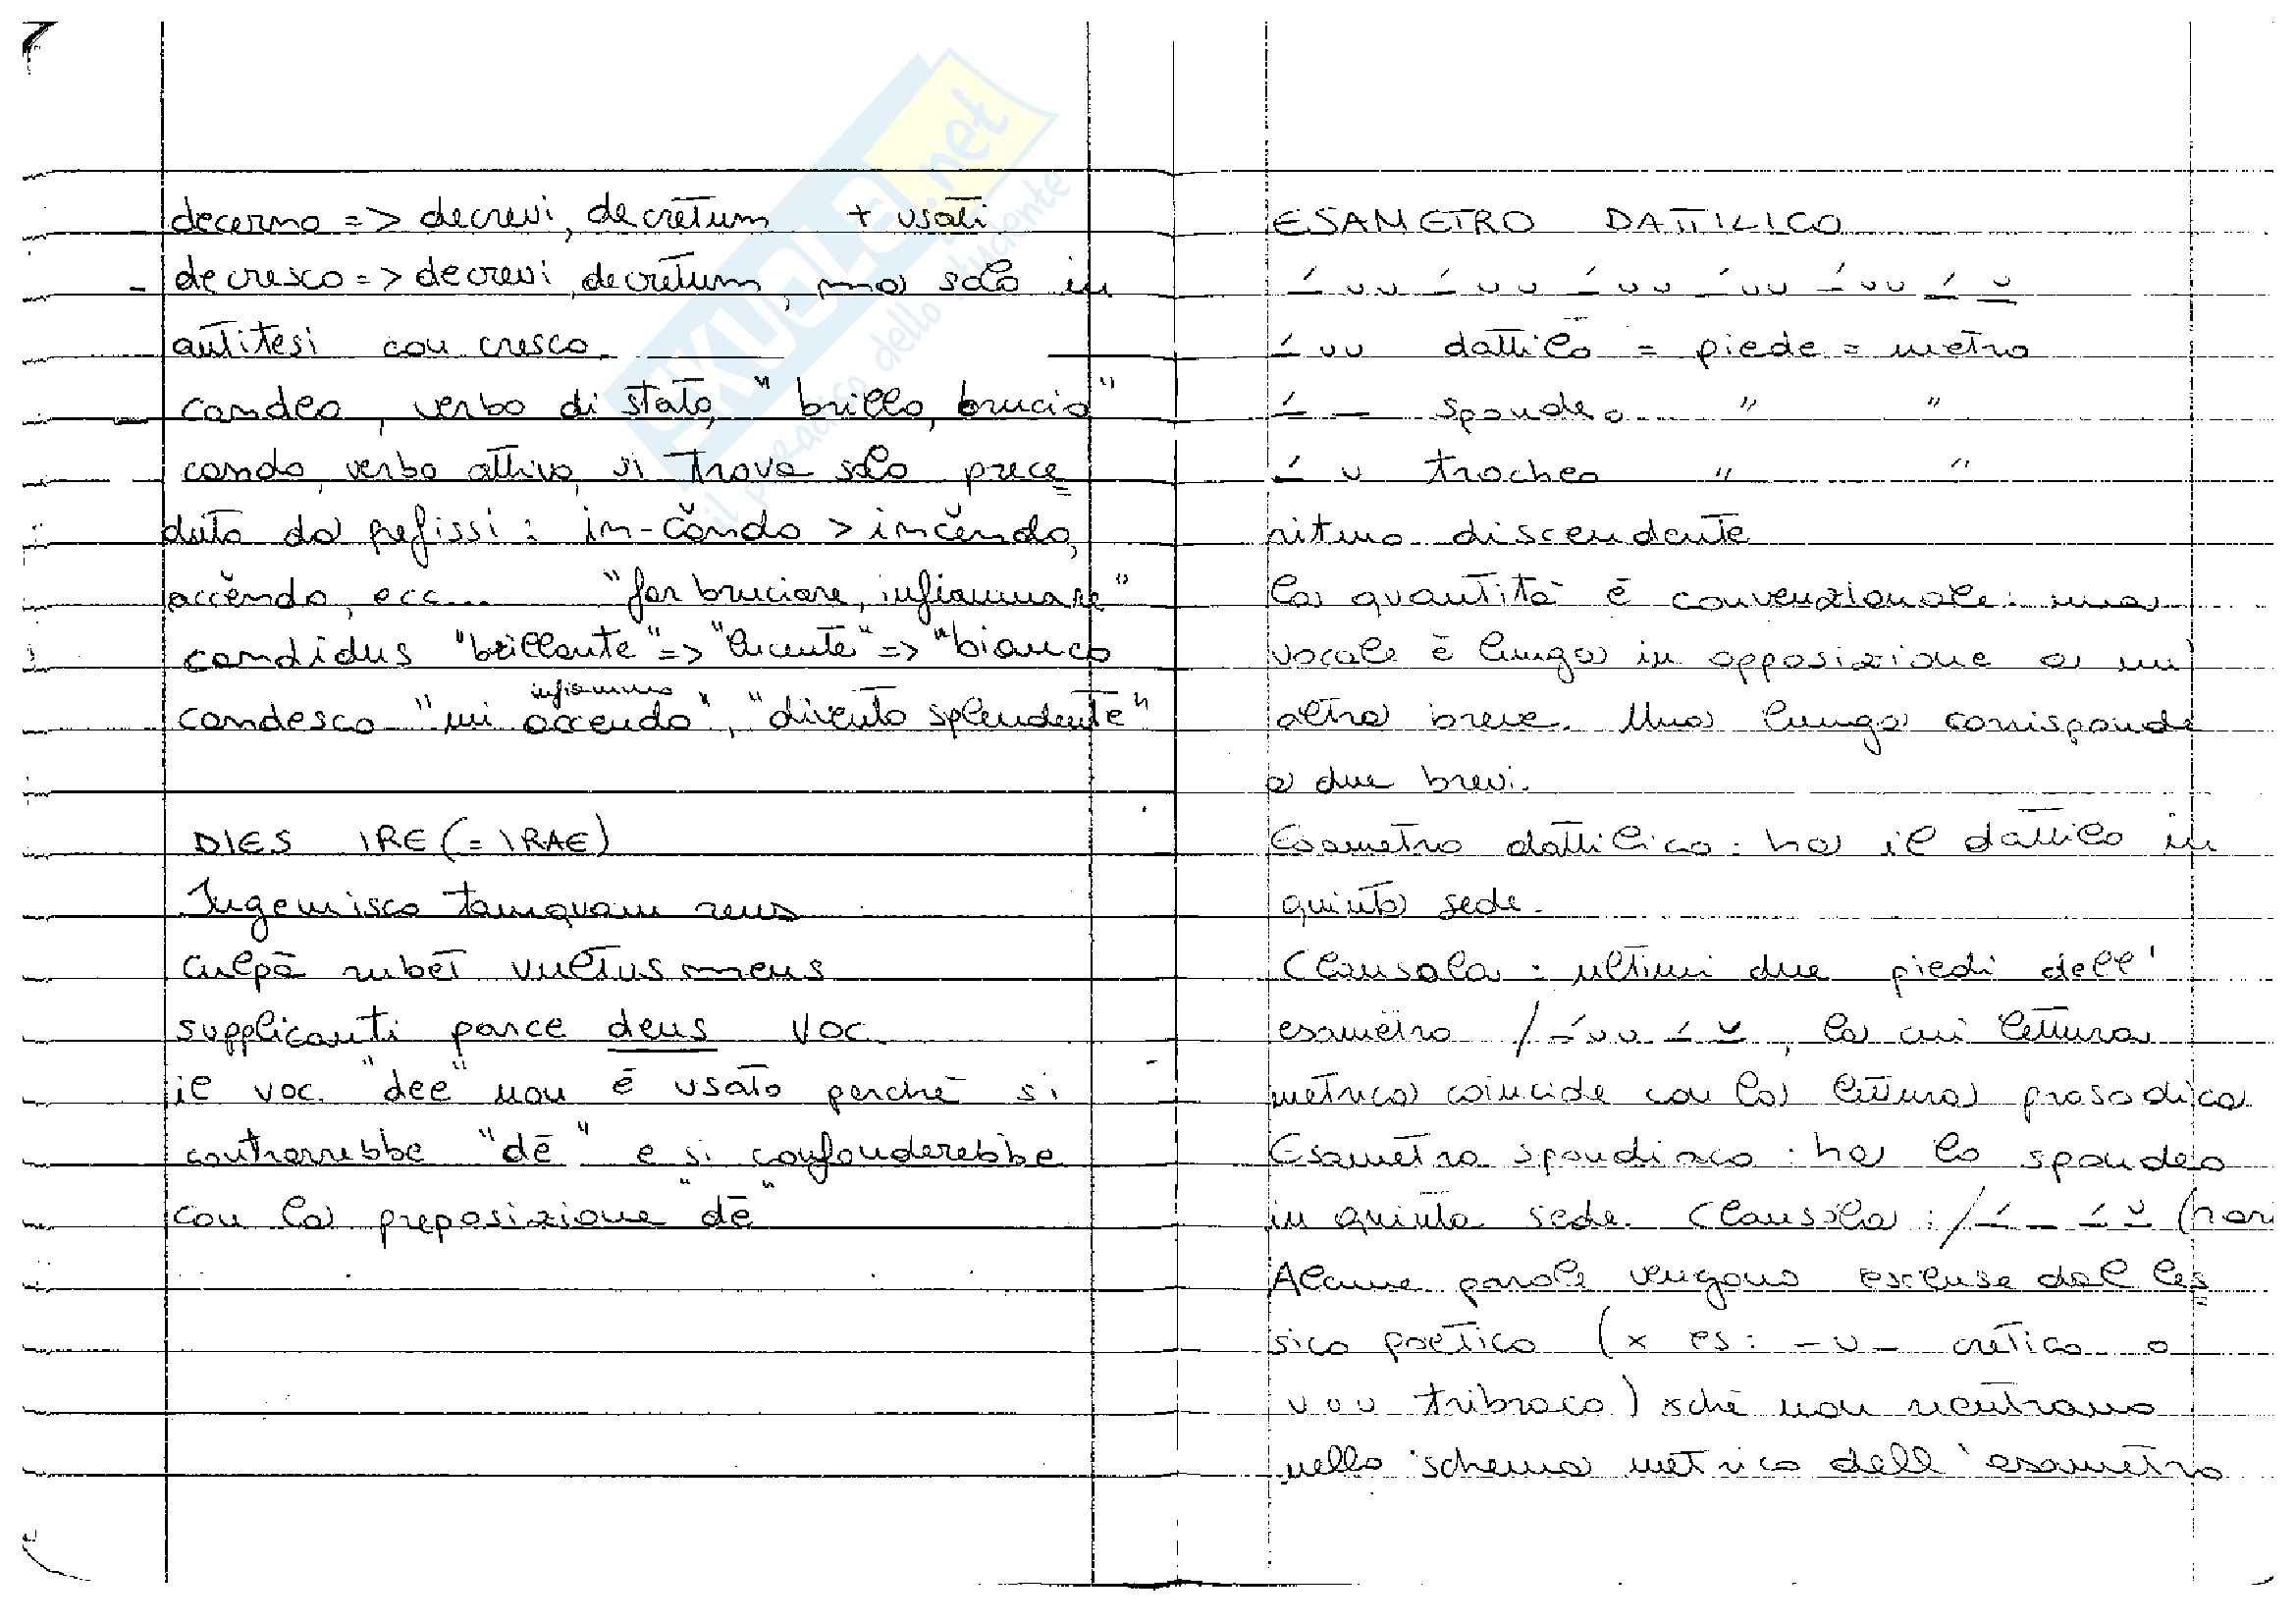 decerno => decrevi, decretum + usati
- decresco => decrevi, decretum, ma solo in
antitesi con cresco.
- candeo, verbo di stato, "brillo, brucio"
cando, verbo attivo, si trova solo prece
duto da prefissi: in-căndo > incĕndo,
accĕndo, ecc... "far bruciare, infiammare"
candidus "brillante" => "lucente" => "bianco
infiammo
candesco "mi accendo", "divento splendente"
DIES IRE (= IRAE)
Ingemisco tamquam reus
culpā rubet vultus meus
supplicanti parce deus voc.
il voc. "dee" non è usato perché si
contrarrebbe "dē" e si confonderebbe
con la preposizione "dē"
ESAMETRO DATTILICO
–́ ∪∪ –́ ∪∪ –́ ∪∪ –́ ∪∪ –́ ∪∪ –́ ∪̲
–́ ∪∪ dattilo = piede = metro
–́ – spondeo " "
–́ ∪ trocheo " "
ritmo discendente
la quantità è convenzionale: una
vocale è lunga in opposizione a un'
altra breve. Una lunga corrisponde
a due brevi.
Esametro dattilico: ha il dattilo in
quinta sede.
Clausola: ultimi due piedi dell'
esametro /–́ ∪∪ –́ ∪̲, la cui lettura
metrica coincide con la lettura prosodica
Esametro spondiaco: ha lo spondeo
in quinta sede. Clausola: /–́ – –́ ∪̲ (rari
Alcune parole vengono escluse dal les
sico poetico (x es: – ∪ – cretico o
∪∪∪ tribraco) xché non rientrano
nello schema metrico dell'esametro
SKUOLA.net
il paradiso dello studente